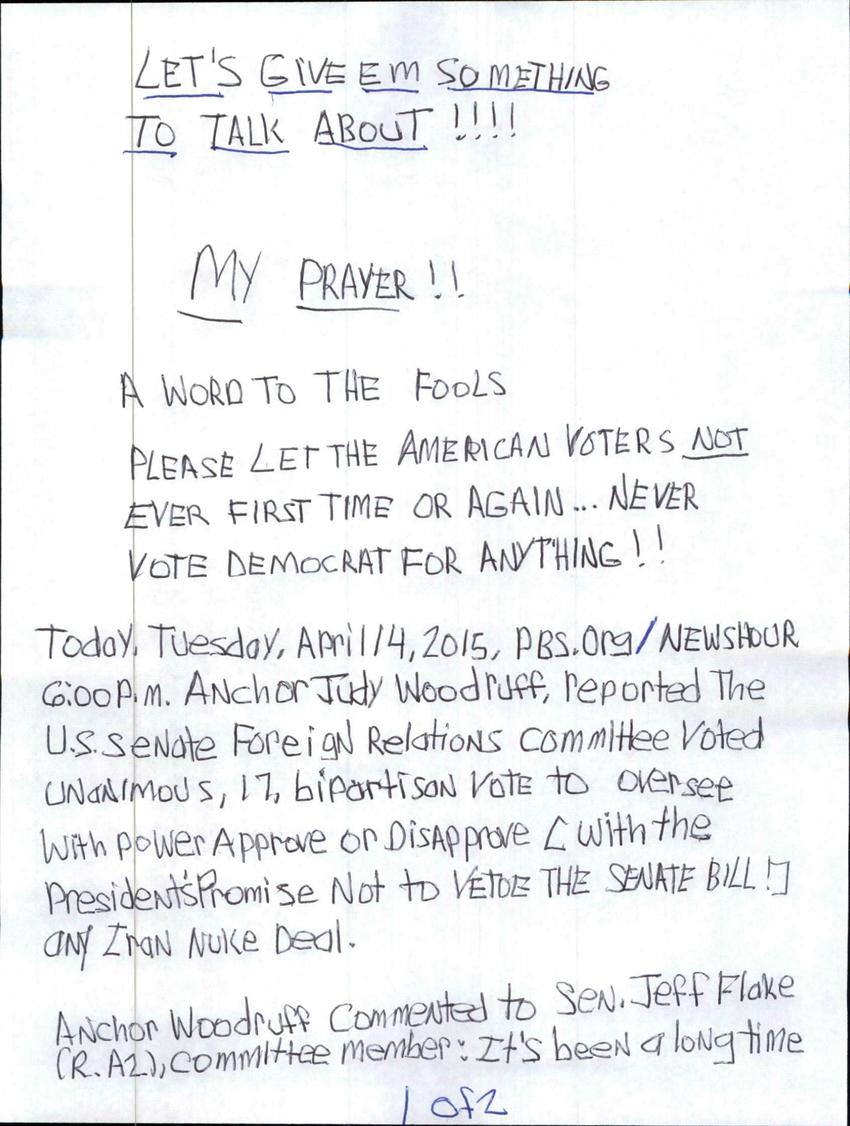 LET'S GIVE EM SOMETHING
TO TALK ABOUT !!!!
MY PRAYER !!
A WORD TO THE FOOLS
PLEASE LET THE AMERICAN VOTERS NOT
EVER FIRST TIME OR AGAIN... NEVER
VOTE DEMOCRAT FOR ANYTHING!!
Today, Tuesday, April 14, 2015, PBS.Org/NEWSHOUR
6:00 P.m. ANchor Judy Woodruff, reported The
U.S. SeNate ForeigN RelatioNs committee Voted
UNaNimous, 17, bipartisoN VOTE to oversee
With power Approve or DisApprove [ with the
PresideNt's Promise Not to VETOE THE SENATE BILL!]
aNy IraN Nuke Deal.
ANchor Woodruff CommeNted to SeN. Jeff Flake
(R.AZ), committee member: It's beeN a long time
1 of 2